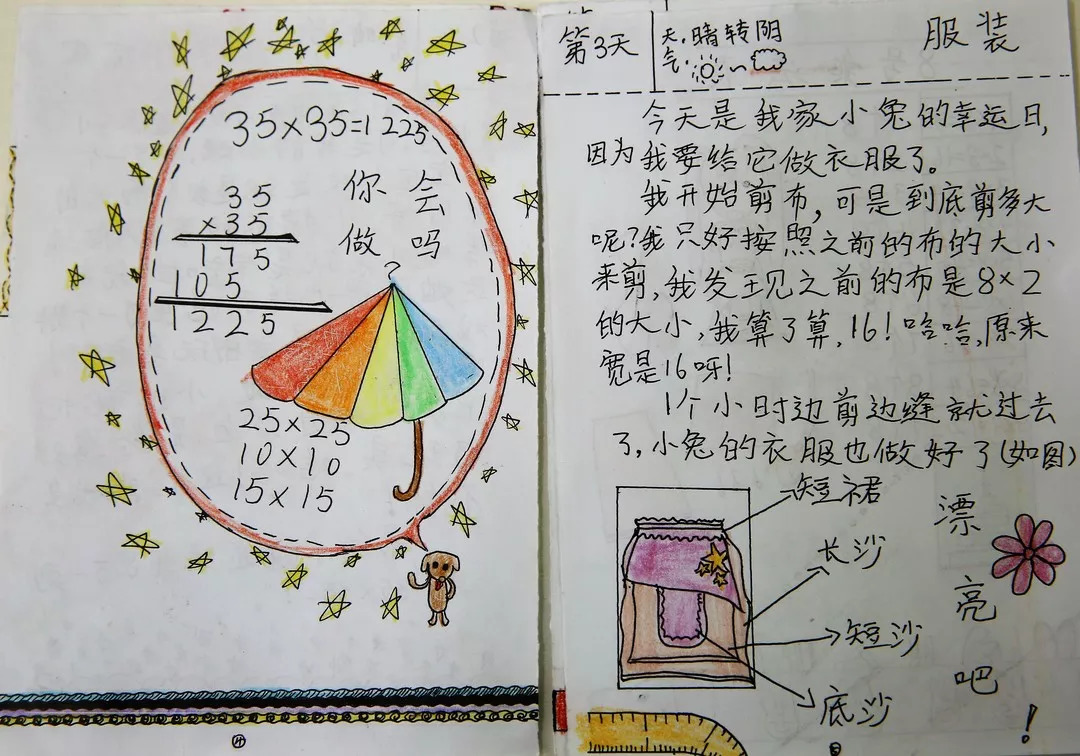 35×35=1225
35
×35
175
105
1225
你会
做吗
25×25
10×10
15×15
第3天
天气:晴转阴
服装
今天是我家小兔的幸运日,
因为我要给它做衣服了。
我开始剪布,可是到底剪多大
呢?我只好按照之前的布的大小
来剪,我发现之前的布是8×2
的大小,我算了算,16!哈哈,原来
宽是16呀!
1个小时边剪边缝就过去
了,小兔的衣服也做好了(如图)
短裙
长沙
短沙
底沙
漂亮吧!